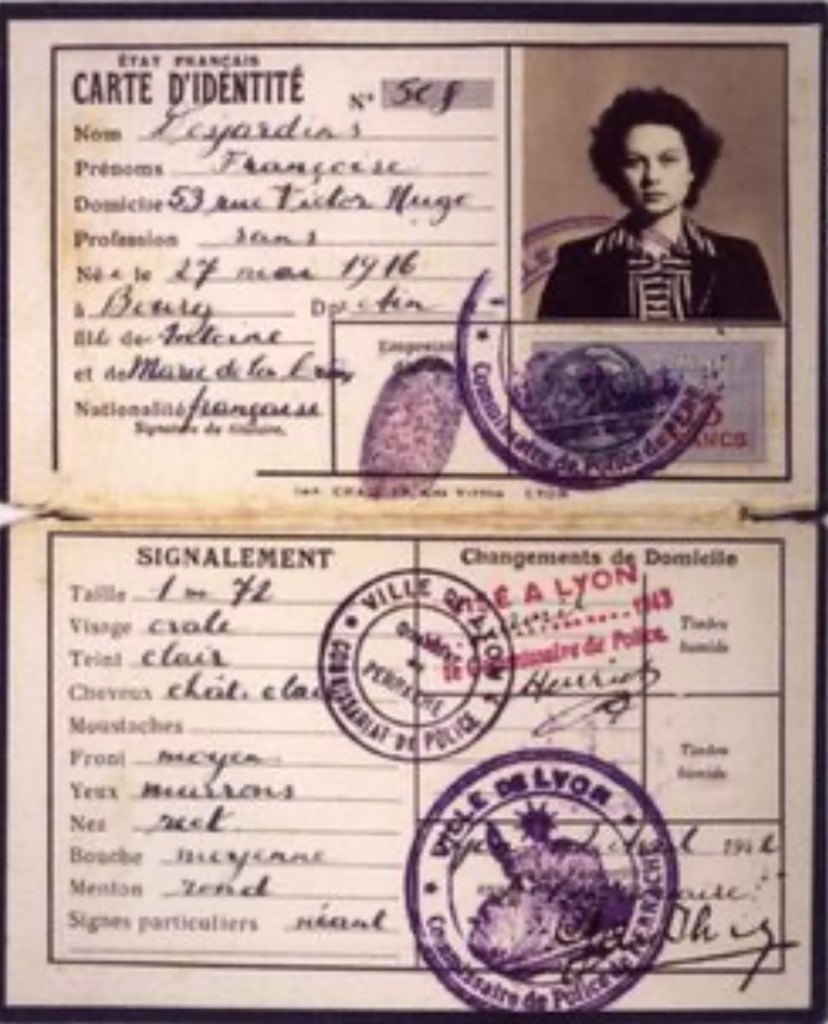 ÉTAT FRANÇAIS
CARTE D'IDENTITÉ
N°
Nom Desjardins
Prénoms Françoise
Domicile 53 rue Victor Hugo
Profession sans
Née le 27 mai 1916
à Bourg Dpt Ain
fille de Antoine
et de Marie de la Croix
Nationalité française
Signature du titulaire,
Commissaire de Police de
FRANCS
LYON
SIGNALEMENT
Taille 1 m 72
Visage ovale
Teint clair
Cheveux chât. clair
Moustaches
Front moyen
Yeux marrons
Nez rect
Bouche moyenne
Menton rond
Signes particuliers néant
Changements de Domicile
A LYON
1943
le Commissaire de Police,
Henriot
Timbre
humide
Timbre
humide
VILLE DE LYON
PERRACHE
COMMISSARIAT DE POLICE
VILLE DE LYON
Commissaire de Police de PERRACHE